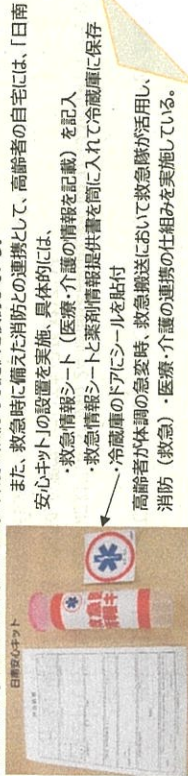 また、救急時に備えた消防との連携として、高齢者の自宅には、「日南
安心キット」の設置を実施、具体的には、
・救急情報シート（医療・介護の情報を記載）を記入
・救急情報シートと薬剤情報提供書を筒に入れて冷蔵庫に保存
・冷蔵庫のドアにシールを貼付
高齢者が体調の急変時、救急搬送において救急隊が活用し、
消防（救急）・医療・介護の連携の仕組みを実施している。
日南安心キット